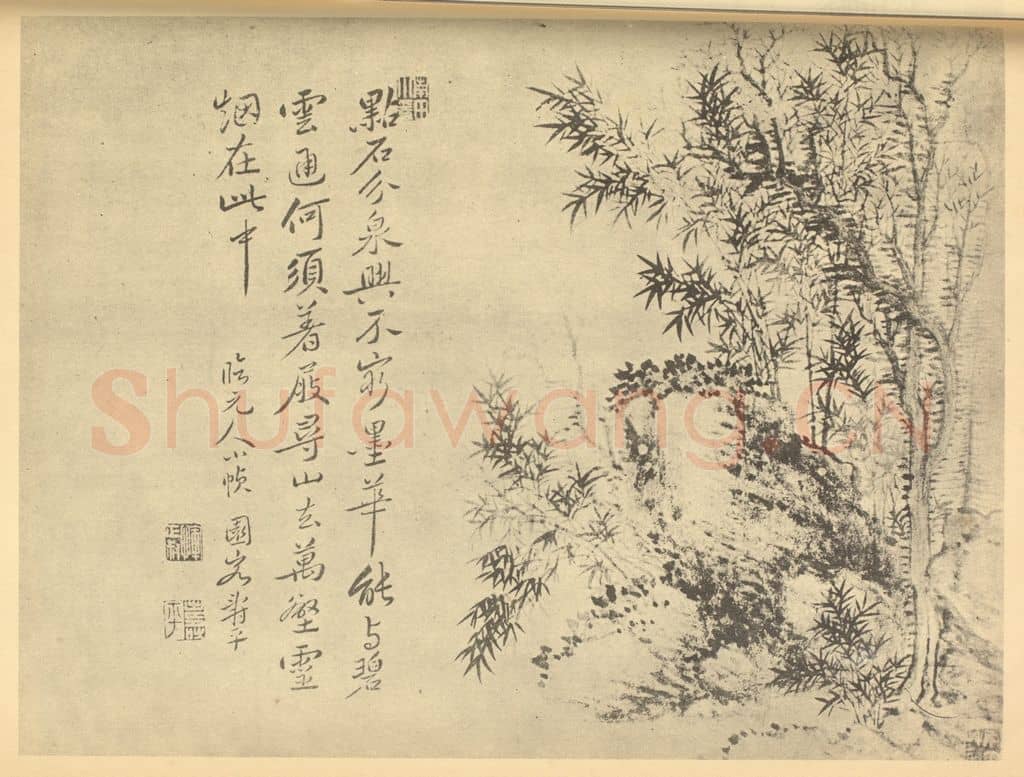 點石分泉興不窮墨華能与碧
雲通何須着屐尋山去萬壑靈
烟在此中
臨元人小幀 園客壽平
Shufawang.CN